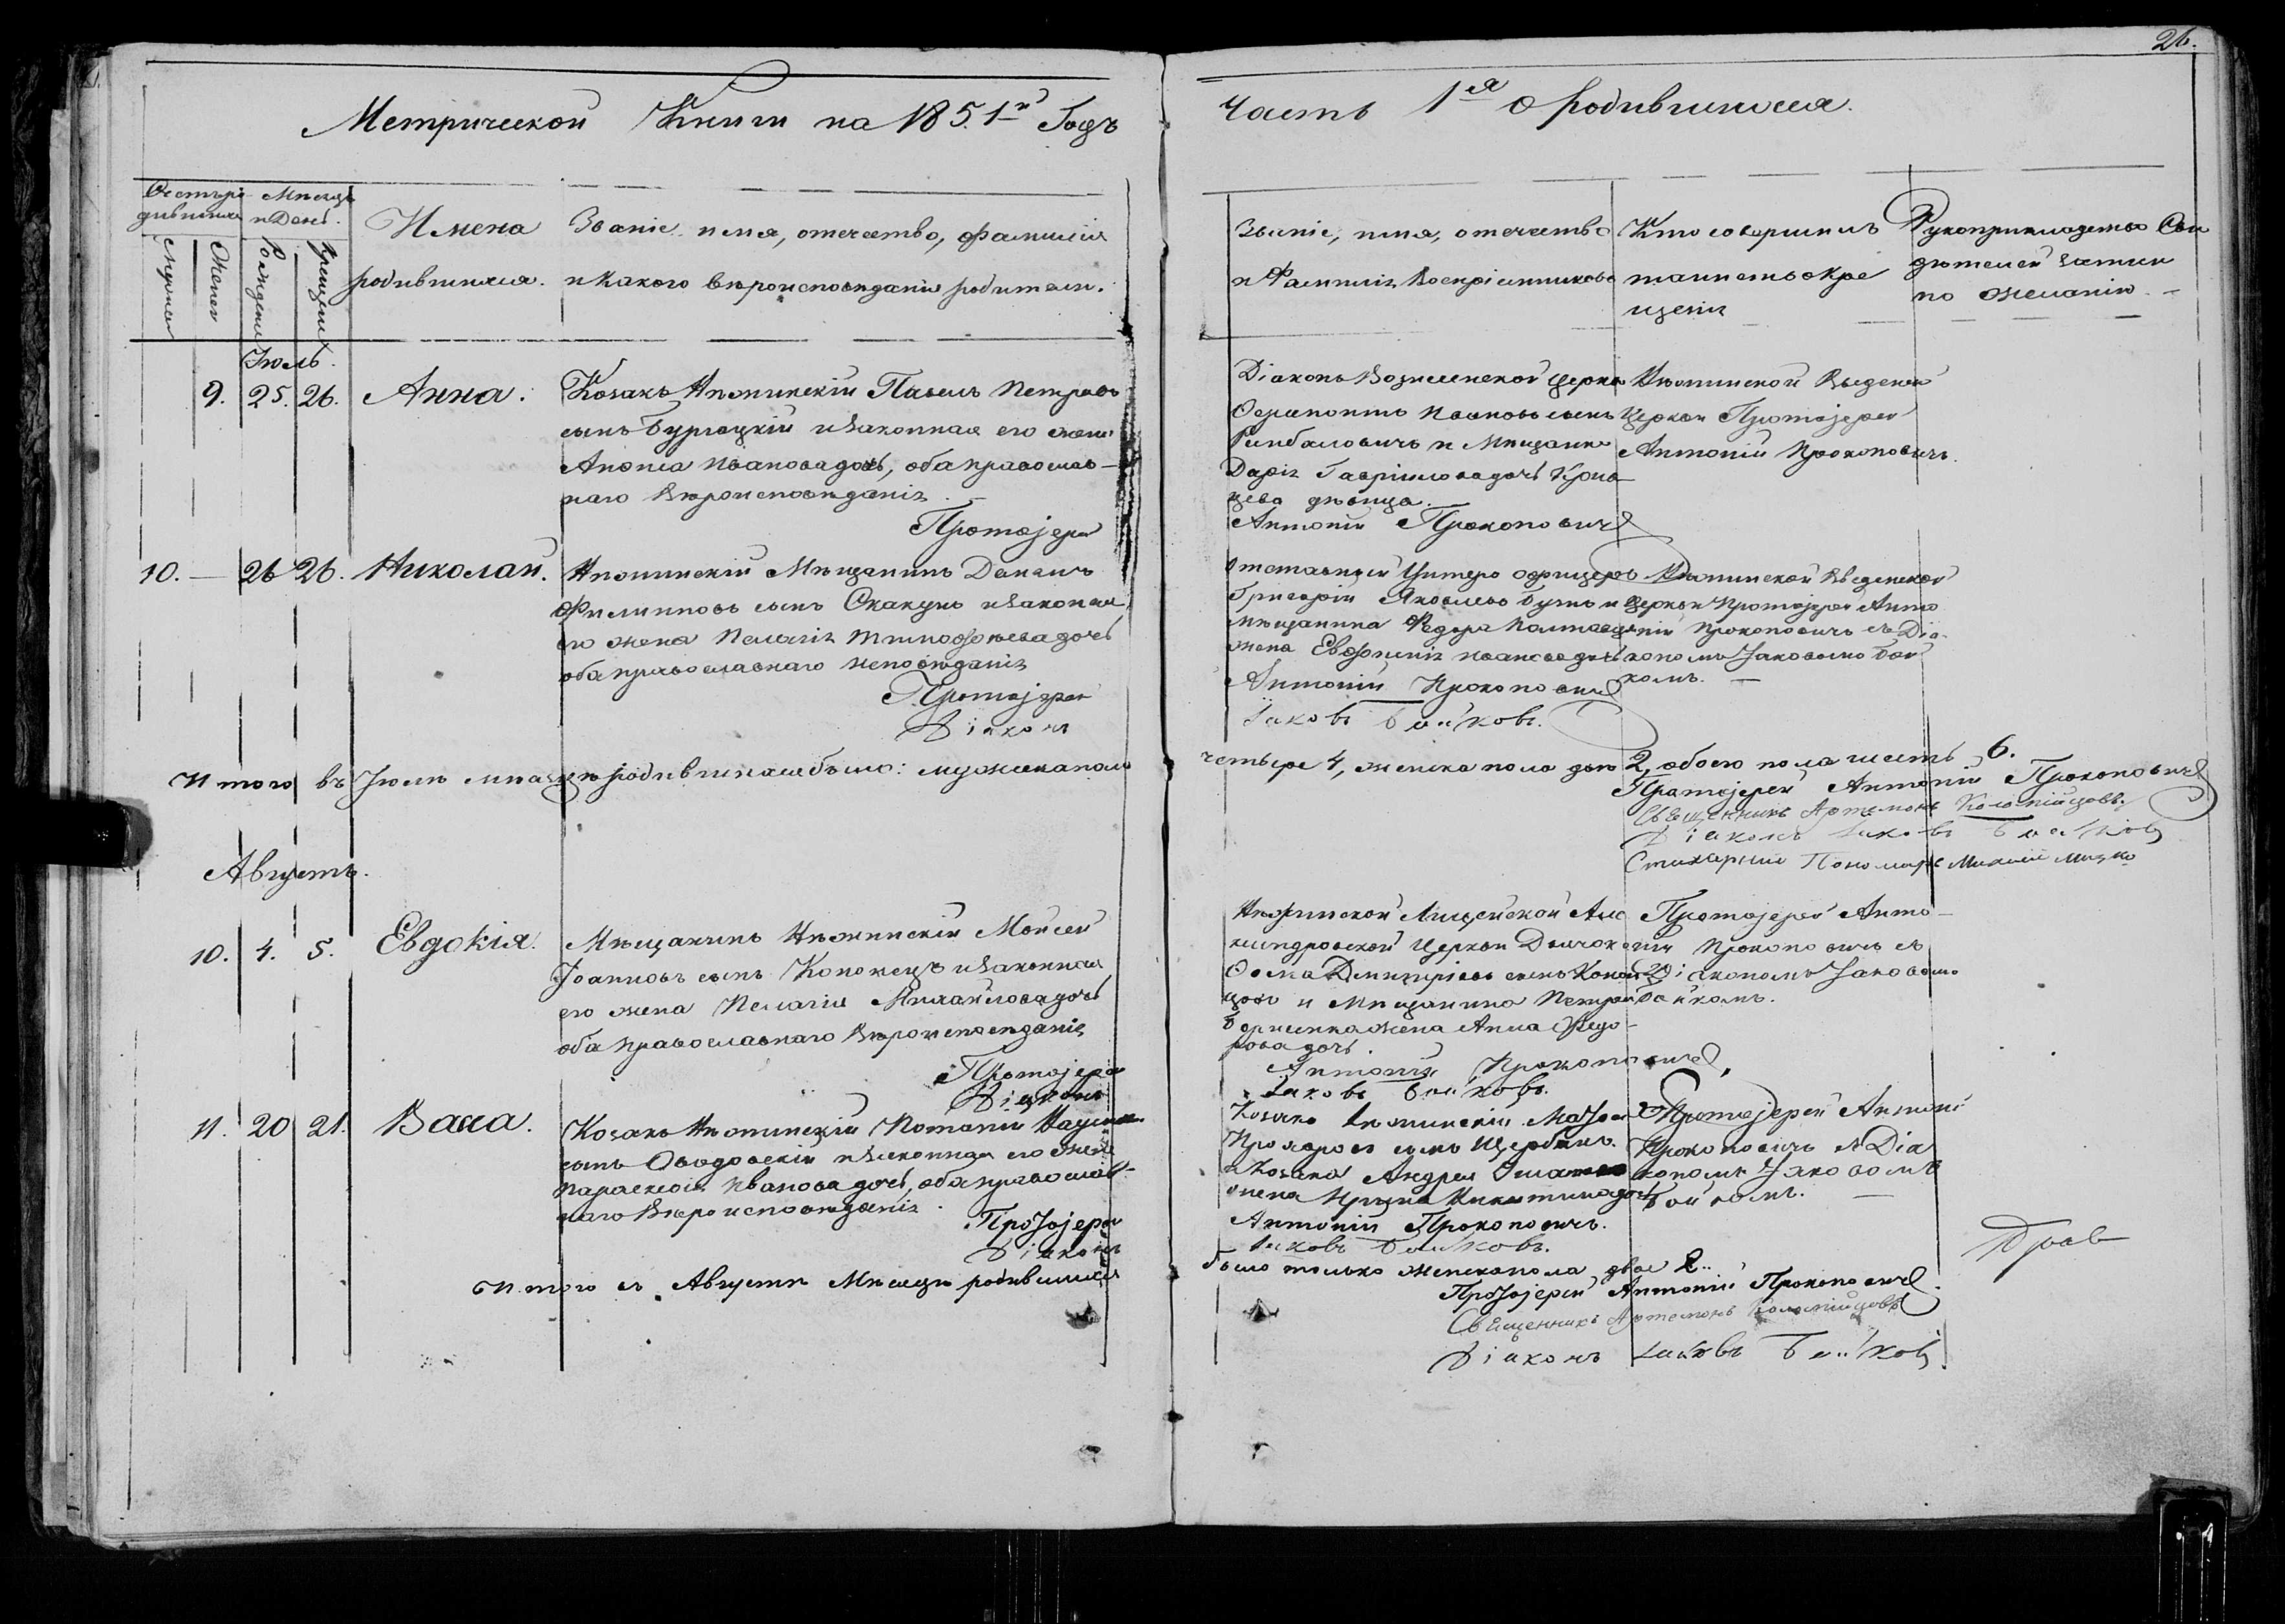 26.
Метрической Книги на 1851й Годъ
Часть 1я о родившихся.
Мѣсяцъ
и День.
Имена
родившихся.
Званіе имя, отечество, фамилія
и какого вѣроисповѣданія родители.
Званіе, имя, отечество
и Фамилія Воспріемниковъ
Кто совершилъ
таинство кре
щенія
Рукоприкладство Сви
дѣтелей записи
по желанію
Іюль.
9. 25. 26. Анна.
Козакъ Нѣжинскій Павелъ Петровъ
сынъ и законная его жена
Ивановадочь, оба православ-
наго вѣроисповѣданія.
Протоіерей
Діаконъ Вознесенской Церкви
сынъ
и Мѣщанка
Дарія Гавріиловадочь
дѣвица.
Антоній Прокоповичъ
Нѣжинской Введенской
Церкви Протоіерей
Антоній Прокоповичъ.
10. — 26 26. Николай.
Нѣжинскій Мѣщанинъ Даніилъ
Филипповъ сынъ Скакунъ и законная
его жена Пелагія Тимофѣевадочь
оба православнаго исповѣданія
Протоіерей
Діаконъ
Отставный Унтеръ офицеръ
Григорій Яковлевъ и
мѣщанина Федора
жена Евфимія Ивановадочь
Антоній Прокоповичъ
Іаковъ Бойковъ.
Нѣжинской Введенской
Церкви Протоіерей Анто
ній Прокоповичъ съ Діа-
кономъ Іаковомъ Бой
комъ. —
Итого въ Іюлѣ мѣсяцѣ родившихся было: мужеска пола
четыре 4, женска пола двѣ 2, обоего пола шесть 6.
Протоіерей Антоній Прокоповичъ
Священникъ Артемонъ Коломійцовъ
Діаконъ Іаковъ Бойковъ
Стихарный Пономарь
Августъ.
10. 4. 5. Евдокія.
Мѣщанинъ Нѣжинскій Моисей
Іоанновъ сынъ Кононецъ и законная
его жена Пелагія Михайловадочь
оба православнаго вѣроисповѣданія
Протоіерей
Діаконъ
Нѣжинской Лицейской Алек
сандровской Церкви Дьячокъ
Фома Димитріевъ сынъ
и Мѣщанина Петра
жена Анна Федо-
рова дочь.
Антоній Прокоповичъ
Іаковъ Бойковъ.
Протоіерей Анто-
ній Прокоповичъ съ
Діакономъ Іаковомъ
Бойкомъ.
11. 20 21. Васса.
Козакъ Нѣжинскій Потапій
сынъ и законная его жена
Параскевія Ивановадочь, оба православ-
наго вѣроисповѣданія.
Протоіерей
Діаконъ
Козакъ Нѣжинскій
Прохоровъ сынъ Щербакъ.
и Козака Андрея
жена Ирина Никитинадочь
Антоній Прокоповичъ.
Іаковъ Бойковъ.
Протоіерей Антоній
Прокоповичъ съ Діа
кономъ Іаковомъ
Бойкомъ. —
Итого въ Августѣ Мѣсяцѣ родившихся
было только женска пола двѣ 2..
Протоіерей Антоній Прокоповичъ
Священникъ Артемонъ Коломійцовъ
Діаконъ Іаковъ Бойковъ